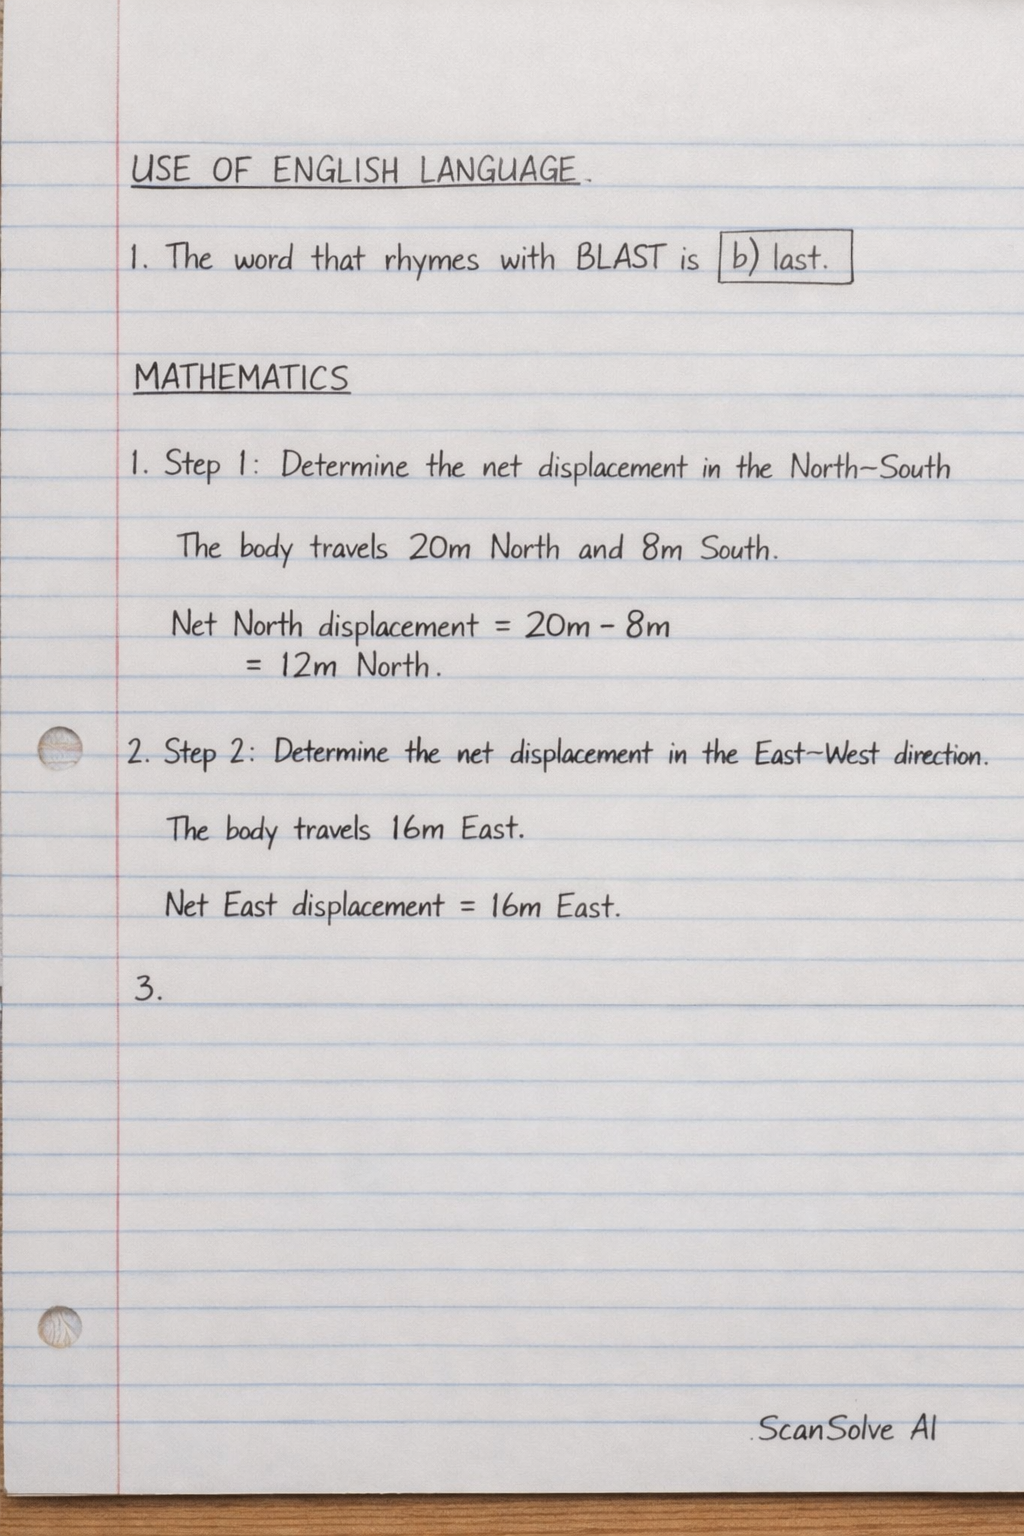 USE OF ENGLISH LANGUAGE.
1. The word that rhymes with BLAST is b) last.
MATHEMATICS
1. Step 1: Determine the net displacement in the North–South
The body travels 20m North and 8m South.
Net North displacement = 20m – 8m
= 12m North.
2. Step 2: Determine the net displacement in the East–West direction.
The body travels 16m East.
Net East displacement = 16m East.
3.
ScanSolve AI